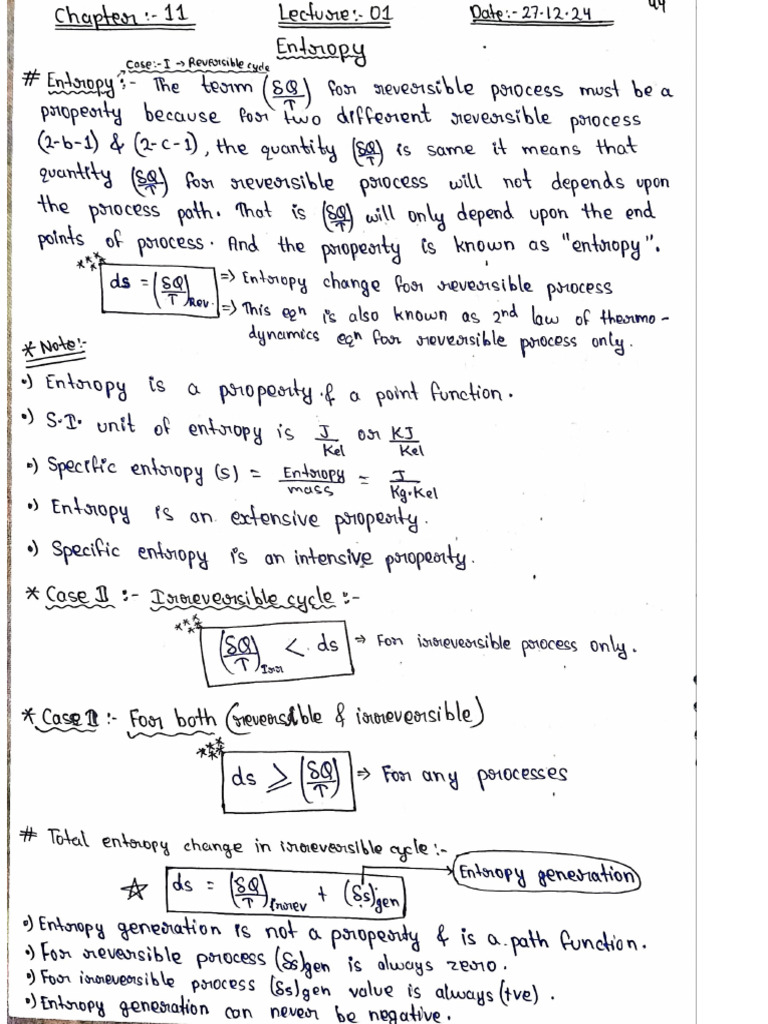 Chapter:- 11 Lecture:- 01 Date:- 27.12.24 44
Entropy
# Entropy:- Case:-I → Reversible cycle The term (δQ/T) for reversible process must be a
property because for two different reversible process
(2-b-1) & (2-c-1), the quantity (δQ/T) is same it means that
quantity (δQ/T) for reversible process will not depends upon
the process path. That is (δQ/T) will only depend upon the end
points of process. And the property is known as "entropy".
ds = (δQ/T)Rev. ⇒ Entropy change for reversible process
⇒ This eqn is also known as 2nd law of thermo-
dynamics eqn for reversible process only.
* Note:-
•) Entropy is a property & a point function.
•) S.I. unit of entropy is J/Kel or KJ/Kel
•) Specific entropy (s) = Entropy/mass = J/Kg.Kel
•) Entropy is an extensive property.
•) Specific entropy is an intensive property.
* Case II :- Irreversible cycle :-
(δQ/T)Irr < ds ⇒ For irreversible process only.
* Case II :- For both (reversible & irreversible)
ds ≥ (δQ/T) ⇒ For any processes
# Total entropy change in irreversible cycle:-
ds = (δQ/T)irrev + (δs)gen → Entropy generation
•) Entropy generation is not a property & is a path function.
•) For reversible process (δs)gen is always zero.
•) For irreversible process (δs)gen value is always (+ve).
•) Entropy generation can never be negative.